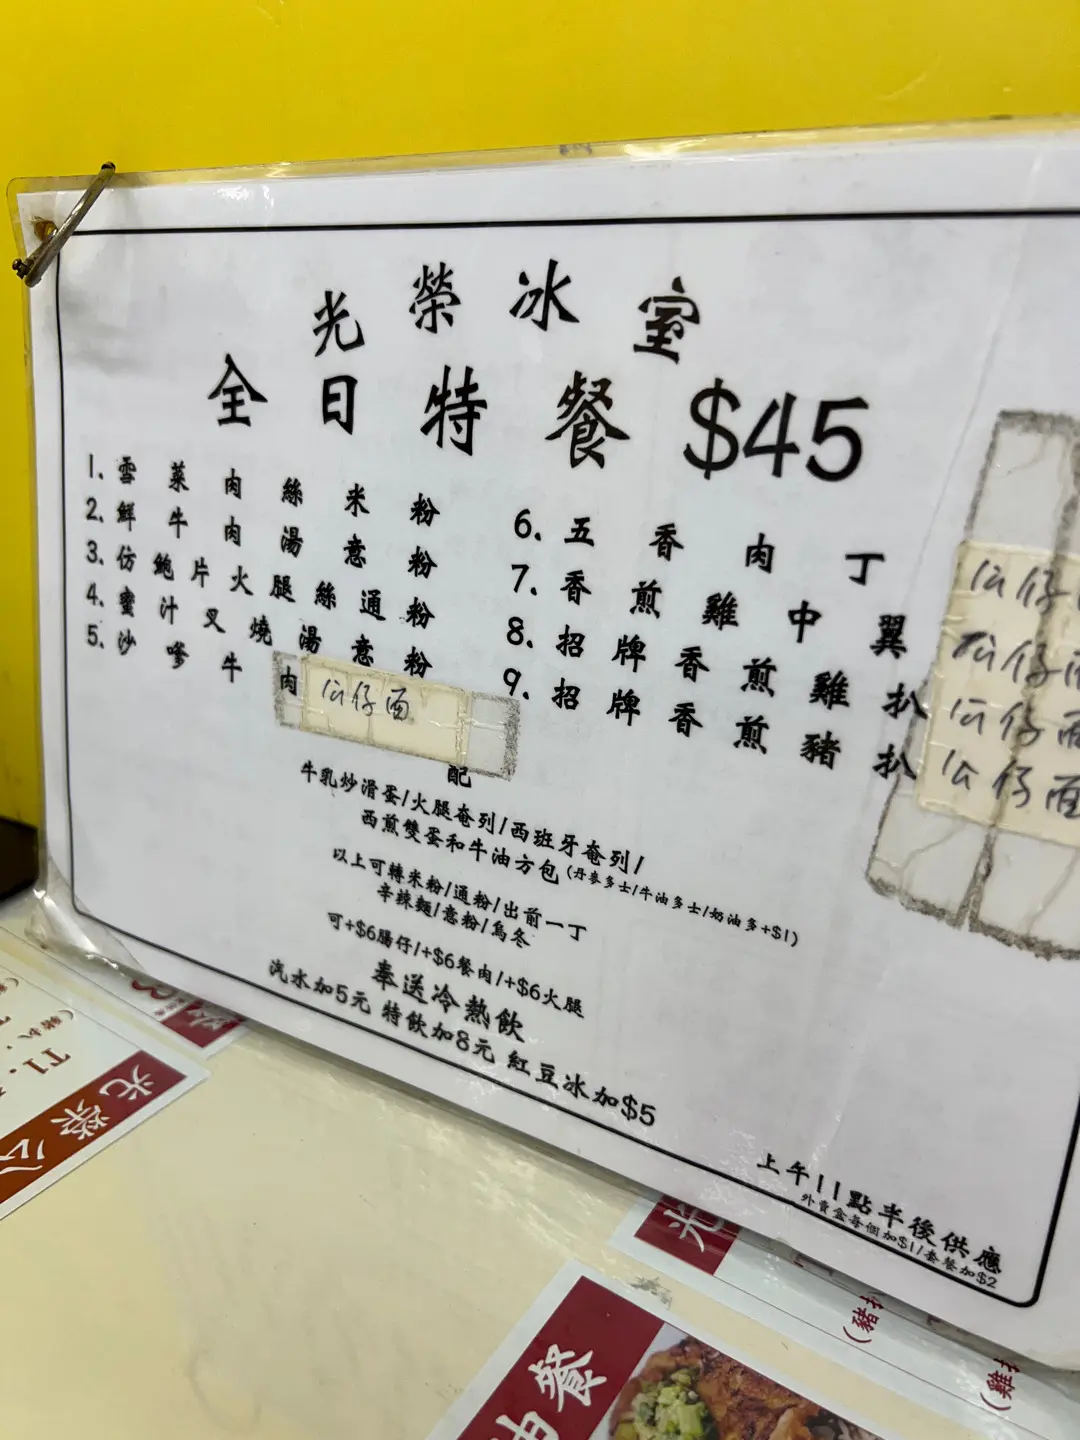 光榮冰室
全日特餐 $45
1. 雪菜肉絲米粉
2. 鮮牛肉湯意粉
3. 仿鮑片火腿絲通粉
4. 蜜汁叉燒湯意粉
5. 沙嗲牛肉公仔面
6. 五香肉丁 公仔
7. 香煎雞中翼 公仔面
8. 招牌香煎雞扒 公仔面
9. 招牌香煎豬扒 公仔面
配
牛乳炒滑蛋/火腿奄列/西班牙奄列/
西煎雙蛋和牛油方包(丹麥多士/牛油多士/奶油多+$1)
以上可轉米粉/通粉/出前一丁
辛辣麵/意粉/烏冬
可+$6腸仔/+$6餐肉/+$6火腿
奉送冷熱飲
汽水加5元 特飲加8元 紅豆冰加$5
上午11點半後供應
外賣盒每個加$1/套餐加$2
光榮公
T1.
光
餐
(豬扒
(雞扒